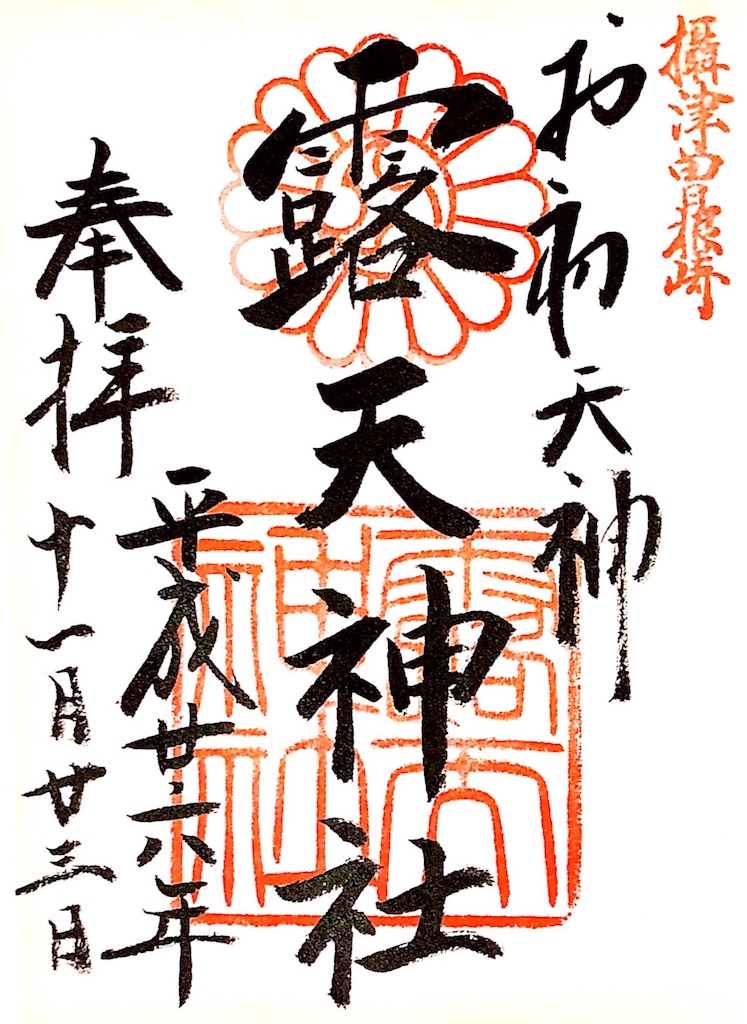 攝津曽根崎
お初天神
露天神社
露天神社
奉拝
平成廿六年
十一月廿三日